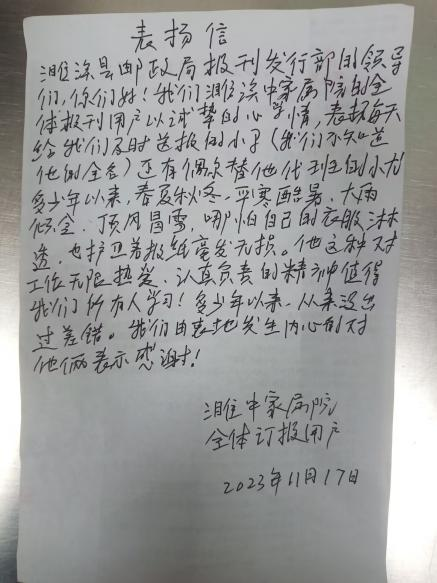 表扬信
濉溪县邮政局报刊发行部的领导
们,你们好!我们濉溪中家属院的全
体报刊用户以诚挚的心情,表扬每天
给我们及时送报的小子(我们不知道
他的全名)还有偶尔替他代班的小尤
多少年以来,春夏秋冬、严寒酷暑、大雨
倾盆、顶风冒雪,哪怕自己的衣服淋
透,也护卫着报纸毫发无损。他这种对
工作无限热爱、认真负责的精神值得
我们所有人学习!多少年以来、从来没出
过差错。我们由衷地发生内心的对
他俩表示感谢!
濉中家属院
全体订报用户
2023年11月17日